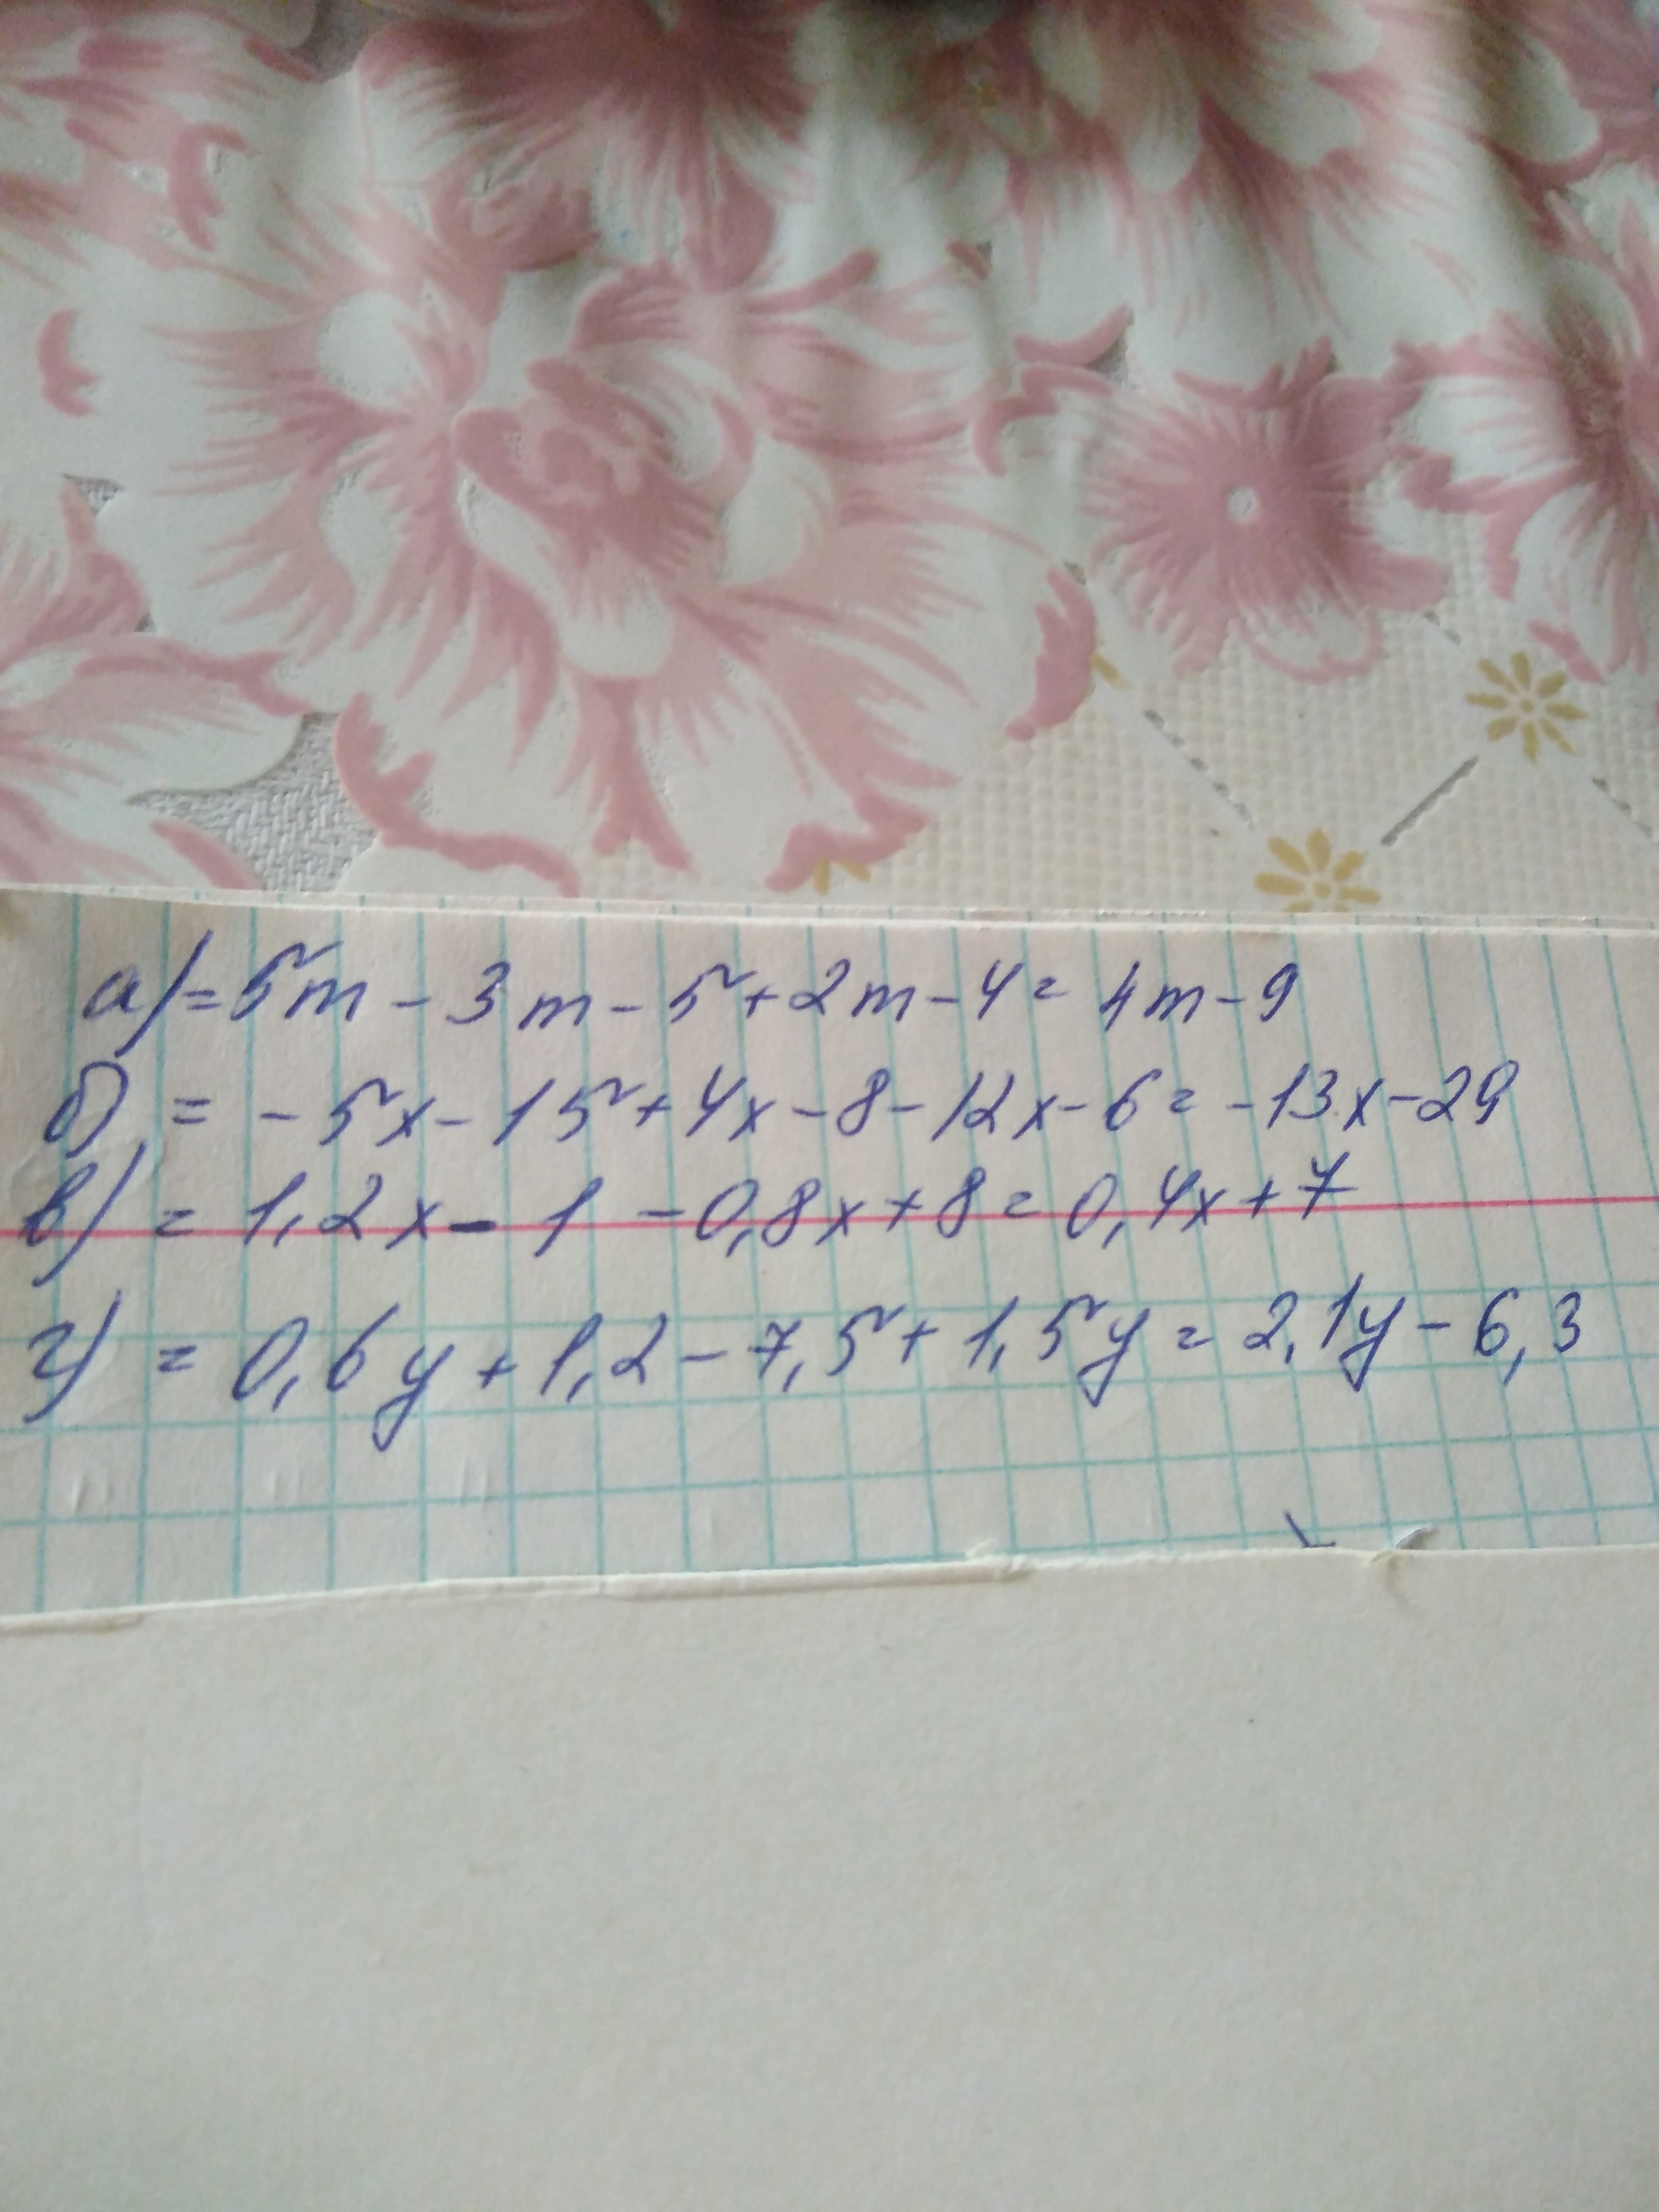 а) = 5m - 3m - 5 + 2m - 4 = 4m - 9
б) = - 5x - 15 + 4x - 8 - 12x - 6 = - 13x - 29
в) = 1,2x - 1 - 0,8x + 8 = 0,4x + 7
г) = 0,6y + 1,2 - 7,5 + 1,5y = 2,1y - 6,3